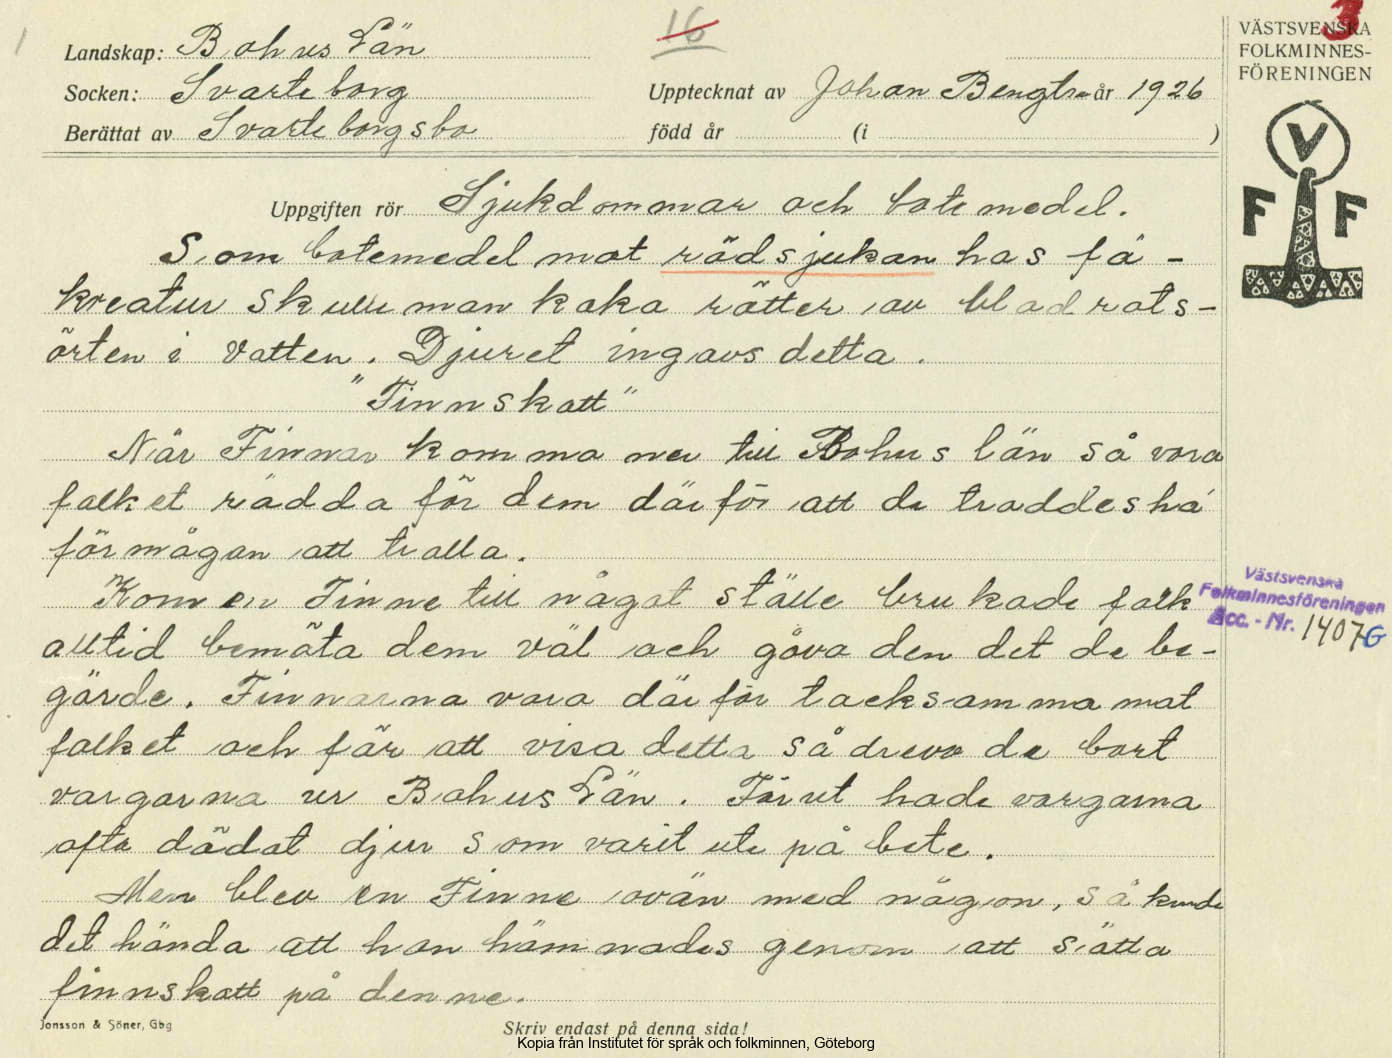 16
3
Landskap: Bohus Län
Socken: Svarteborg
Upptecknat av Johan Bengts- år 1926
Berättat av Svarteborgsbo
född år (i )
VÄSTSVENSKA
FOLKMINNES-
FÖRENINGEN
V
F F
Uppgiften rör Sjukdommar och botemedel.
Som botemedel mot rödsjukan hos få-
kreatur skulle man koka rötter av blodrots-
örten i vatten. Djuret ingavs detta.
"Finnskott"
När Finnar komma ner till Bohus län så vora
folket rädda för dem därför att de troddes ha
förmågan att trolla.
Kom en Finne till något ställe brukade folk
alltid bemöta dem väl och gåva den det de be-
gärde. Finnarna voro därför tacksamma mot
folket och för att visa detta så drevo de bort
vargarna ur Bohus Län. Förut hade vargarna
ofta dödat djur som varit ute på bete.
Men blev en Finne ovän med någon, så kunde
det hända att han hämnades genom att sätta
finnskott på denne.
Västsvenska
Folkminnesföreningen
Acc. - Nr. 1407 G
Jonsson & Söner, Gbg
Skriv endast på denna sida!
Kopia från Institutet för språk och folkminnen, Göteborg